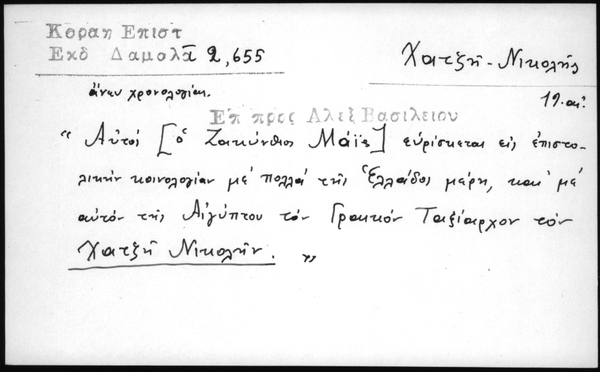 Κοραη Επιστ
Εκδ Δαμαλᾶ 2,655
Χατζῆ-Νικολῆς
ἄνευ χρονολογίας.
19. αι?
Επ προς Αλεξ Βασιλειου
" Αὐτός [ὁ Ζακύνθιος Μάϊς] εὑρίσκεται εἰς ἐπιστο-
λικήν κοινολογίαν μέ πολλά τῆς Ἑλλάδος μέρη, καί μέ
αὐτόν τῆς Αἰγύπτου τόν Γραικόν Ταξίαρχον τόν
Χατζῆ Νικολῆν. "